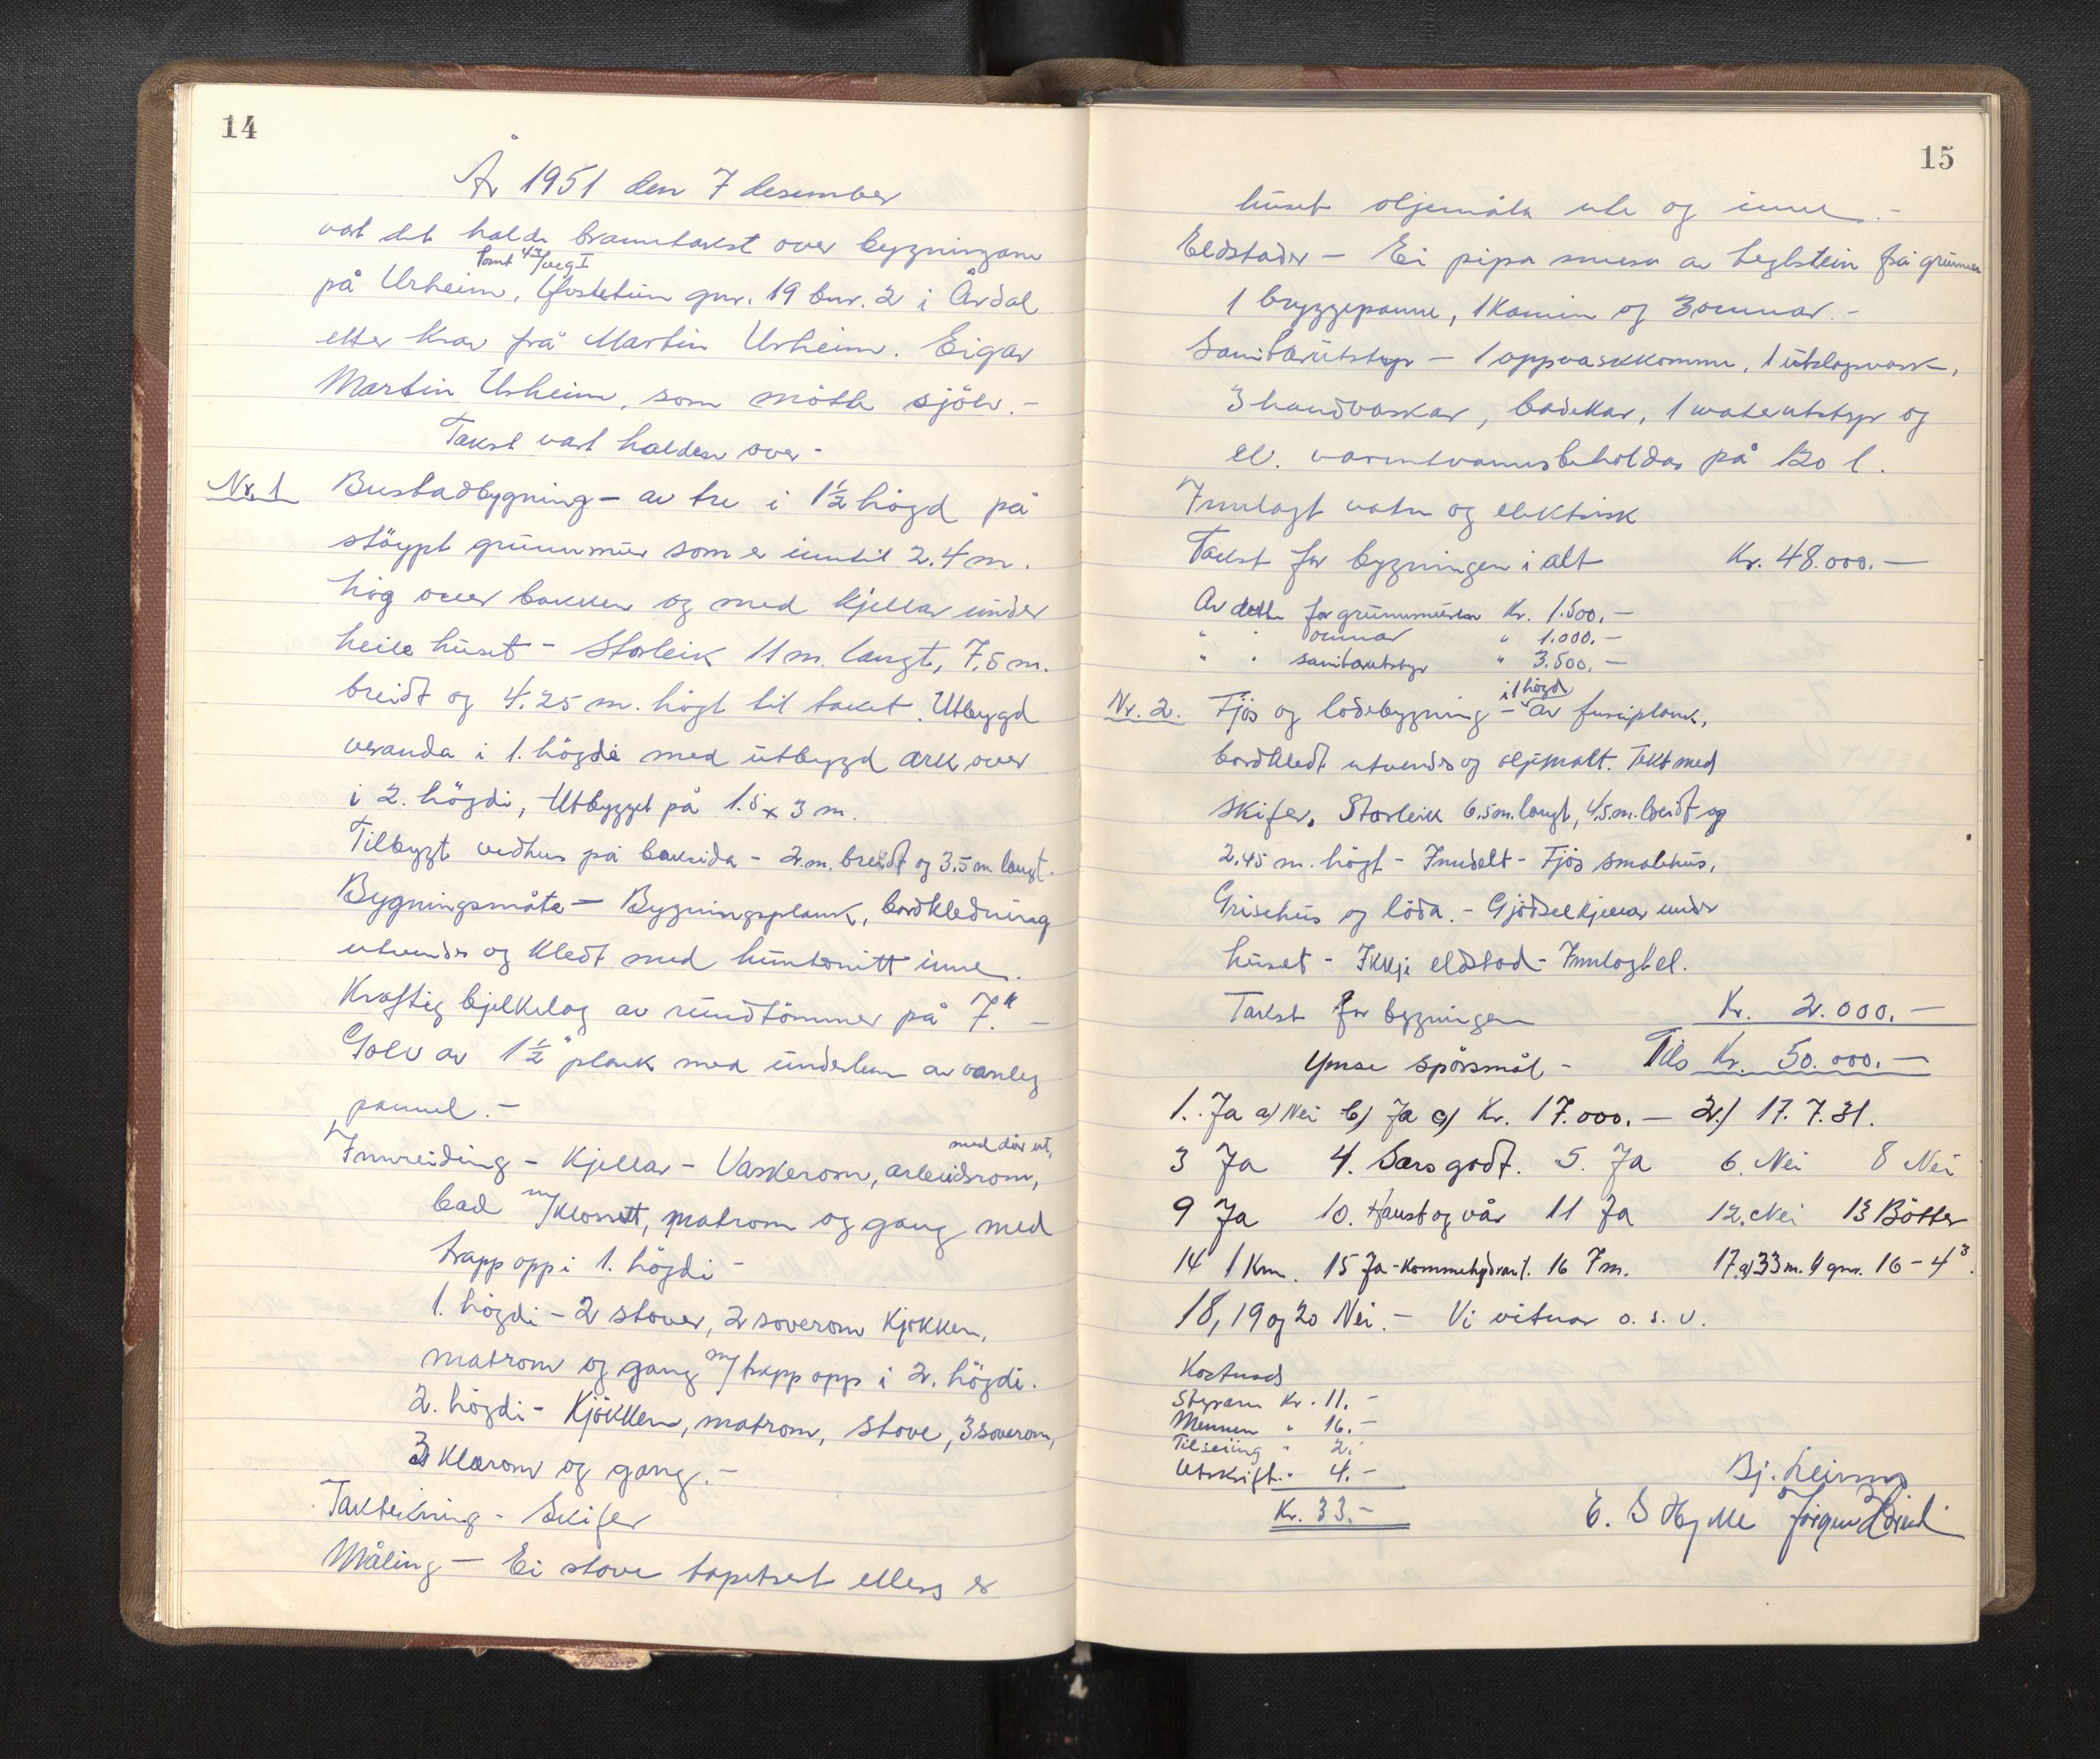 14
År 1951 den 7 desember
vart det halde branntakst over bygningane
Tomt 43/veg I
på Urheim, gnr. 19 bnr. 2 i Årdal
etter krav frå Martin Urheim. Eigar
Martin Urheim, som mötte sjölv.-
Takst vart halden over-
Nr. 1 Bustadbygning - av tre i 1½ högd på
stöypt grunnmur som er inntil 2.4 m.
hög over bakken og med kjellar under
heile huset - Storleik 11 m. langt, 7,5 m.
breidt og 4.25 m. högt til taket. Utbygd
veranda i 1. högdi med utbygd ark over
i 2. högdi, Utbygget på 1.5 x 3 m.
Tilbygt vedhus på baksida - 2.m. breidt og 3.5 m langt.
Bygningsmåte - Bygningsplank, bordkledning
utvendes og kledt med huntonitt inne.
Kraftig bjelkelag av rundtömmer på 7." -
Golv av 1½" plank med underlem av vanleg
pannel.-
med dör ut,
Innreiding - Kjellar - Vaskerom, arbeidsrom,
bad m/klossett, matrom og gang med
trapp opp i 1. högdi -
1. högdi - 2 stover, 2 soverom kjökken,
matrom og gang m/trapp opp i 2. högdi.
2. högdi - Kjökken, matrom, stove, 3 soverom,
3 klærom og gang.-
Taktekning - Skifer
Måling - Ei stove tapetsert ellers er
15
huset oljemåla ute og inne.-
Eldstader - Ei pipa murea av teglstein frå grunnen
1 bryggepanne, 1 kamin og 3 omnar.-
Sanitærutstyr - 1 oppvaskkomme, 1 utslagsvask,
3 handvaskar, badekar, 1 waterutstyr og
el. varmtvannsbeholdar på 120 l.
Innlagt vatn og elektrisk
Takst for bygningen i alt Kr. 48.000.-
Av dette for grunnmuren Kr. 1.500.-
" " omnar " 1.000.-
" " sanitærutstyr " 3.500.-
i 1 högd
Nr. 2. Fjös og lödebygning - av furuplank,
bordkledt utvendes og oljemalt. Tekt med
skifer. Storleik 6.5 m. langt, 4.5 m. breidt og
2.45 m. högt - Inndelt - Fjös smalehus,
Grisehus og löda.- Gjödselkjellar under
huset - Ikkje eldstad - Innlagt el.
Takst for bygningen Kr. 2.000.-
Ymse spörsmål - Tils Kr. 50.000.-
1. Ja a) Nei b) Ja c) Kr. 17.000.- 2.) 17.7.31.
3 Ja 4. Særs godt. 5. Ja 6. Nei 8 Nei
9 Ja 10. Haust og vår 11 Ja 12. Nei 13 Bötter
14 1 Km. 15 Ja - 16 7 m. 17. a) 33 m. 16 - 4³.
18, 19 og 20 Nei.- Vi vitnar o. s. v.
Kostnad
Styraren Kr. 11.-
Mennen " 16.-
Tilseiing " 2.-
Utskrift " 4.-
Kr. 33.-
Bj. Leirmo
E. S Hylle Jörgen